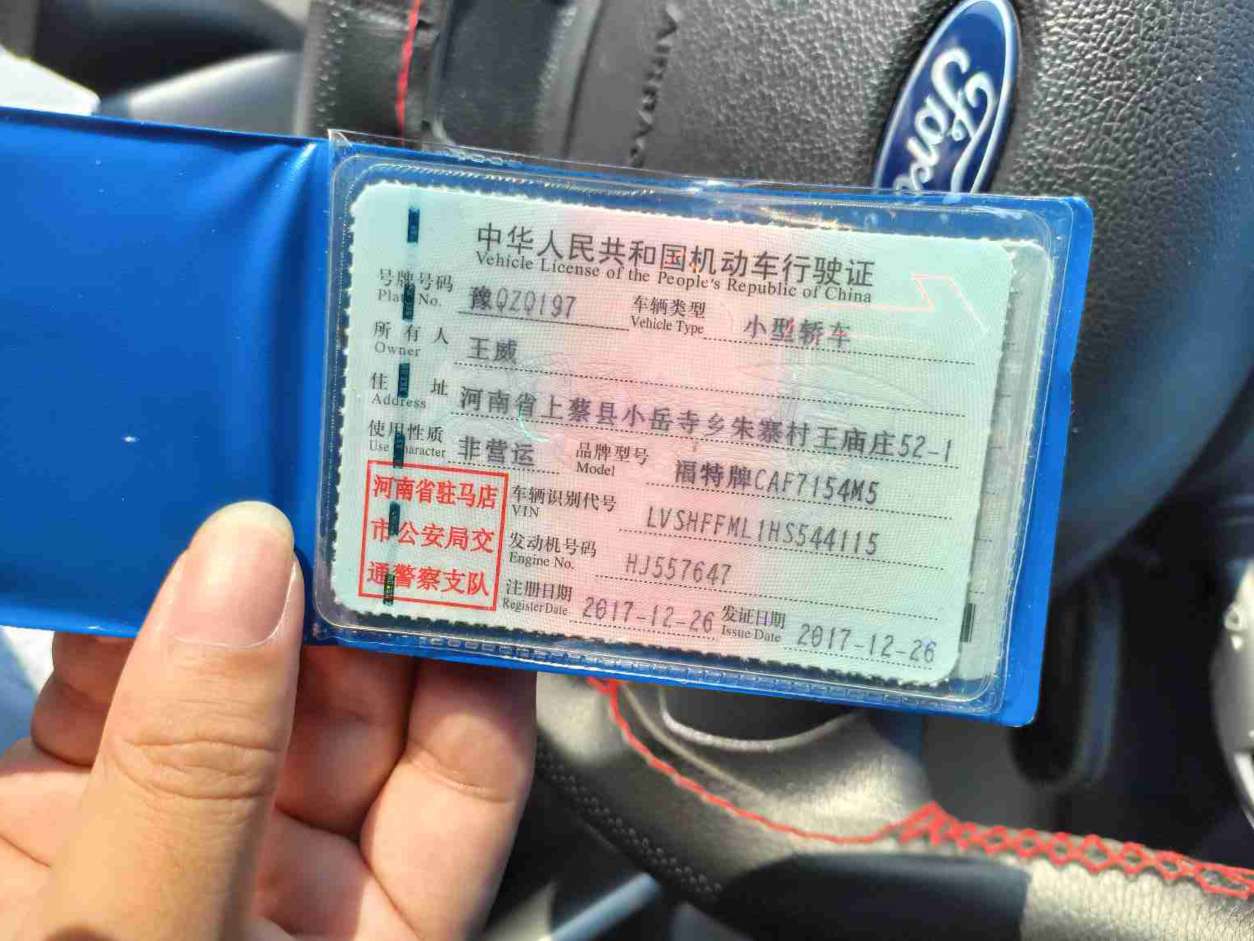 AIRBAG
Ford
中华人民共和国机动车行驶证
Vehicle License of the People's Republic of China
号牌号码 豫QZQ197 车辆类型 小型轿车
Plate No. Vehicle Type
所有人 王威
Owner
住址 河南省上蔡县小岳寺乡朱寨村王庙庄52-1
Address
使用性质 非营运 品牌型号 福特牌CAF7154M5
Use Character Model
河南省驻马店
市公安局交
通警察支队
车辆识别代号 LVSHFFML1HS544115
VIN
发动机号码 HJ557647
Engine No.
注册日期 2017-12-26 发证日期 2017-12-26
Register Date Issue Date